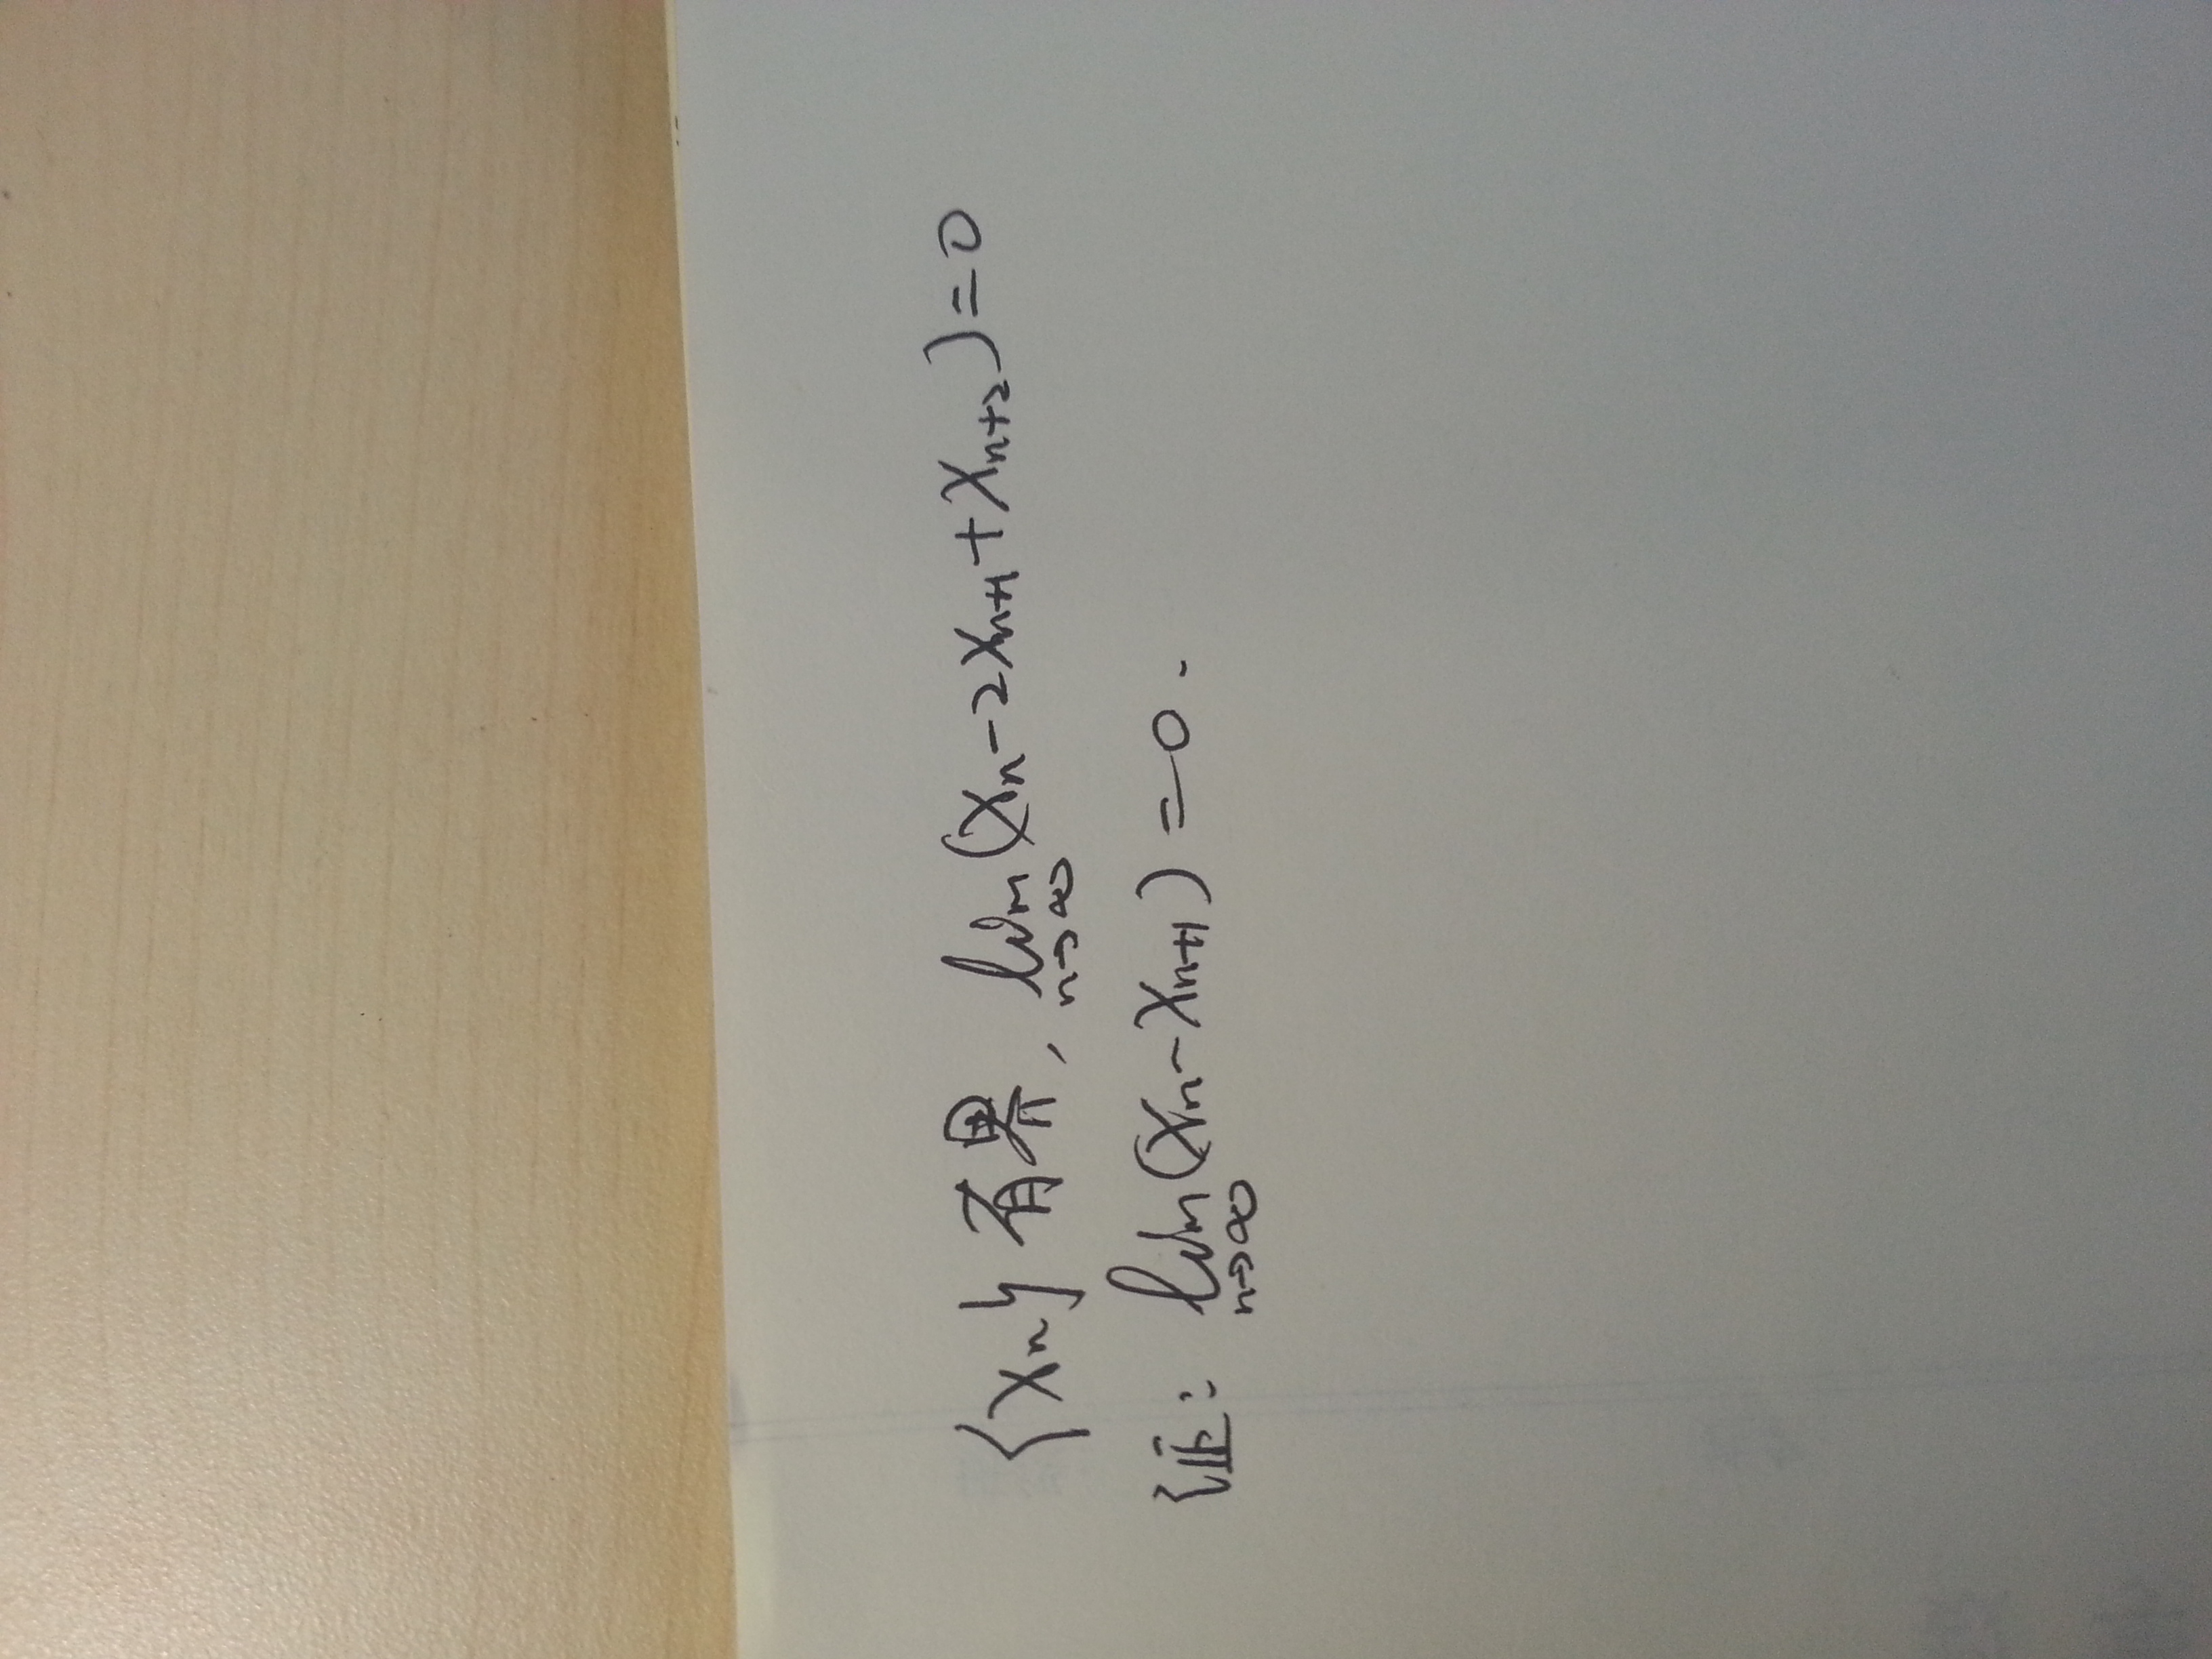 {xn} 有界, lim n→∞ (xn-2xn+1+xn+2)=0
证: lim n→∞ (xn-xn+1)=0.